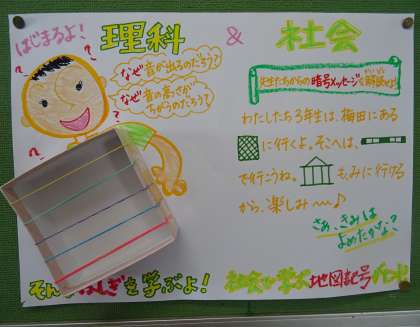 はじまるよ!
理科
&
社会
なぜ音が出るのだろう?
なぜ音の高さが
ちがうのだろう?
先生たちからの暗号メッセージを解読せよ
わたしたち3年生は、梅田にある
に行くよ。そこへは、
で行こうね。
もみに行ける
から、楽しみ〜♪
さあ、きみは
よめたかな?
を学ぶよ!
社会で学ぶ地図記号